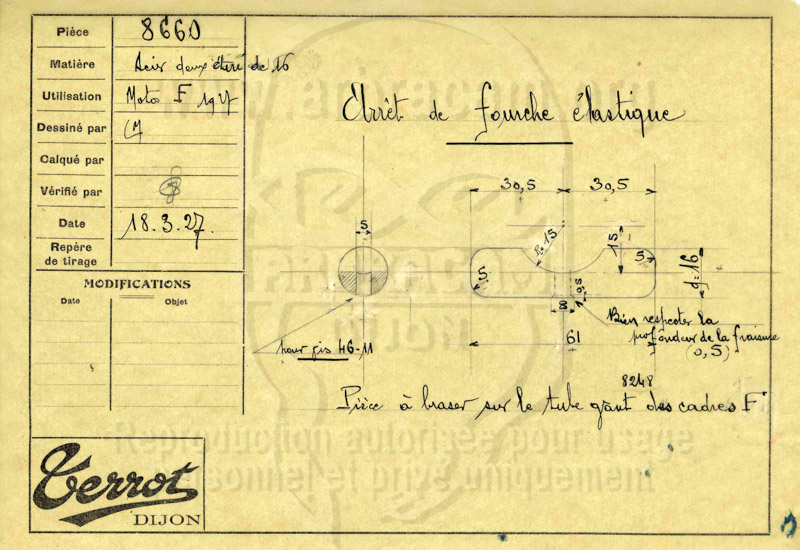 Pièce 8660
Matière Acier doux étiré de 16
Utilisation Moto F 1927
Dessiné par CM
Calqué par
Vérifié par
Date 18.3.27.
Repère
de tirage
MODIFICATIONS
Date Objet
Arrêt de fourche élastique
30,5 30,5
5
R=15
15
5
5
d=16
0,5
8
61
pour fis 46-11
Bien respecter la
profondeur de la fraisure
(0,5)
8248
Pièce à braser sur le tube géant des cadres F
Terrot
DIJON
Reproduction autorisée pour usage
personnel et privé uniquement